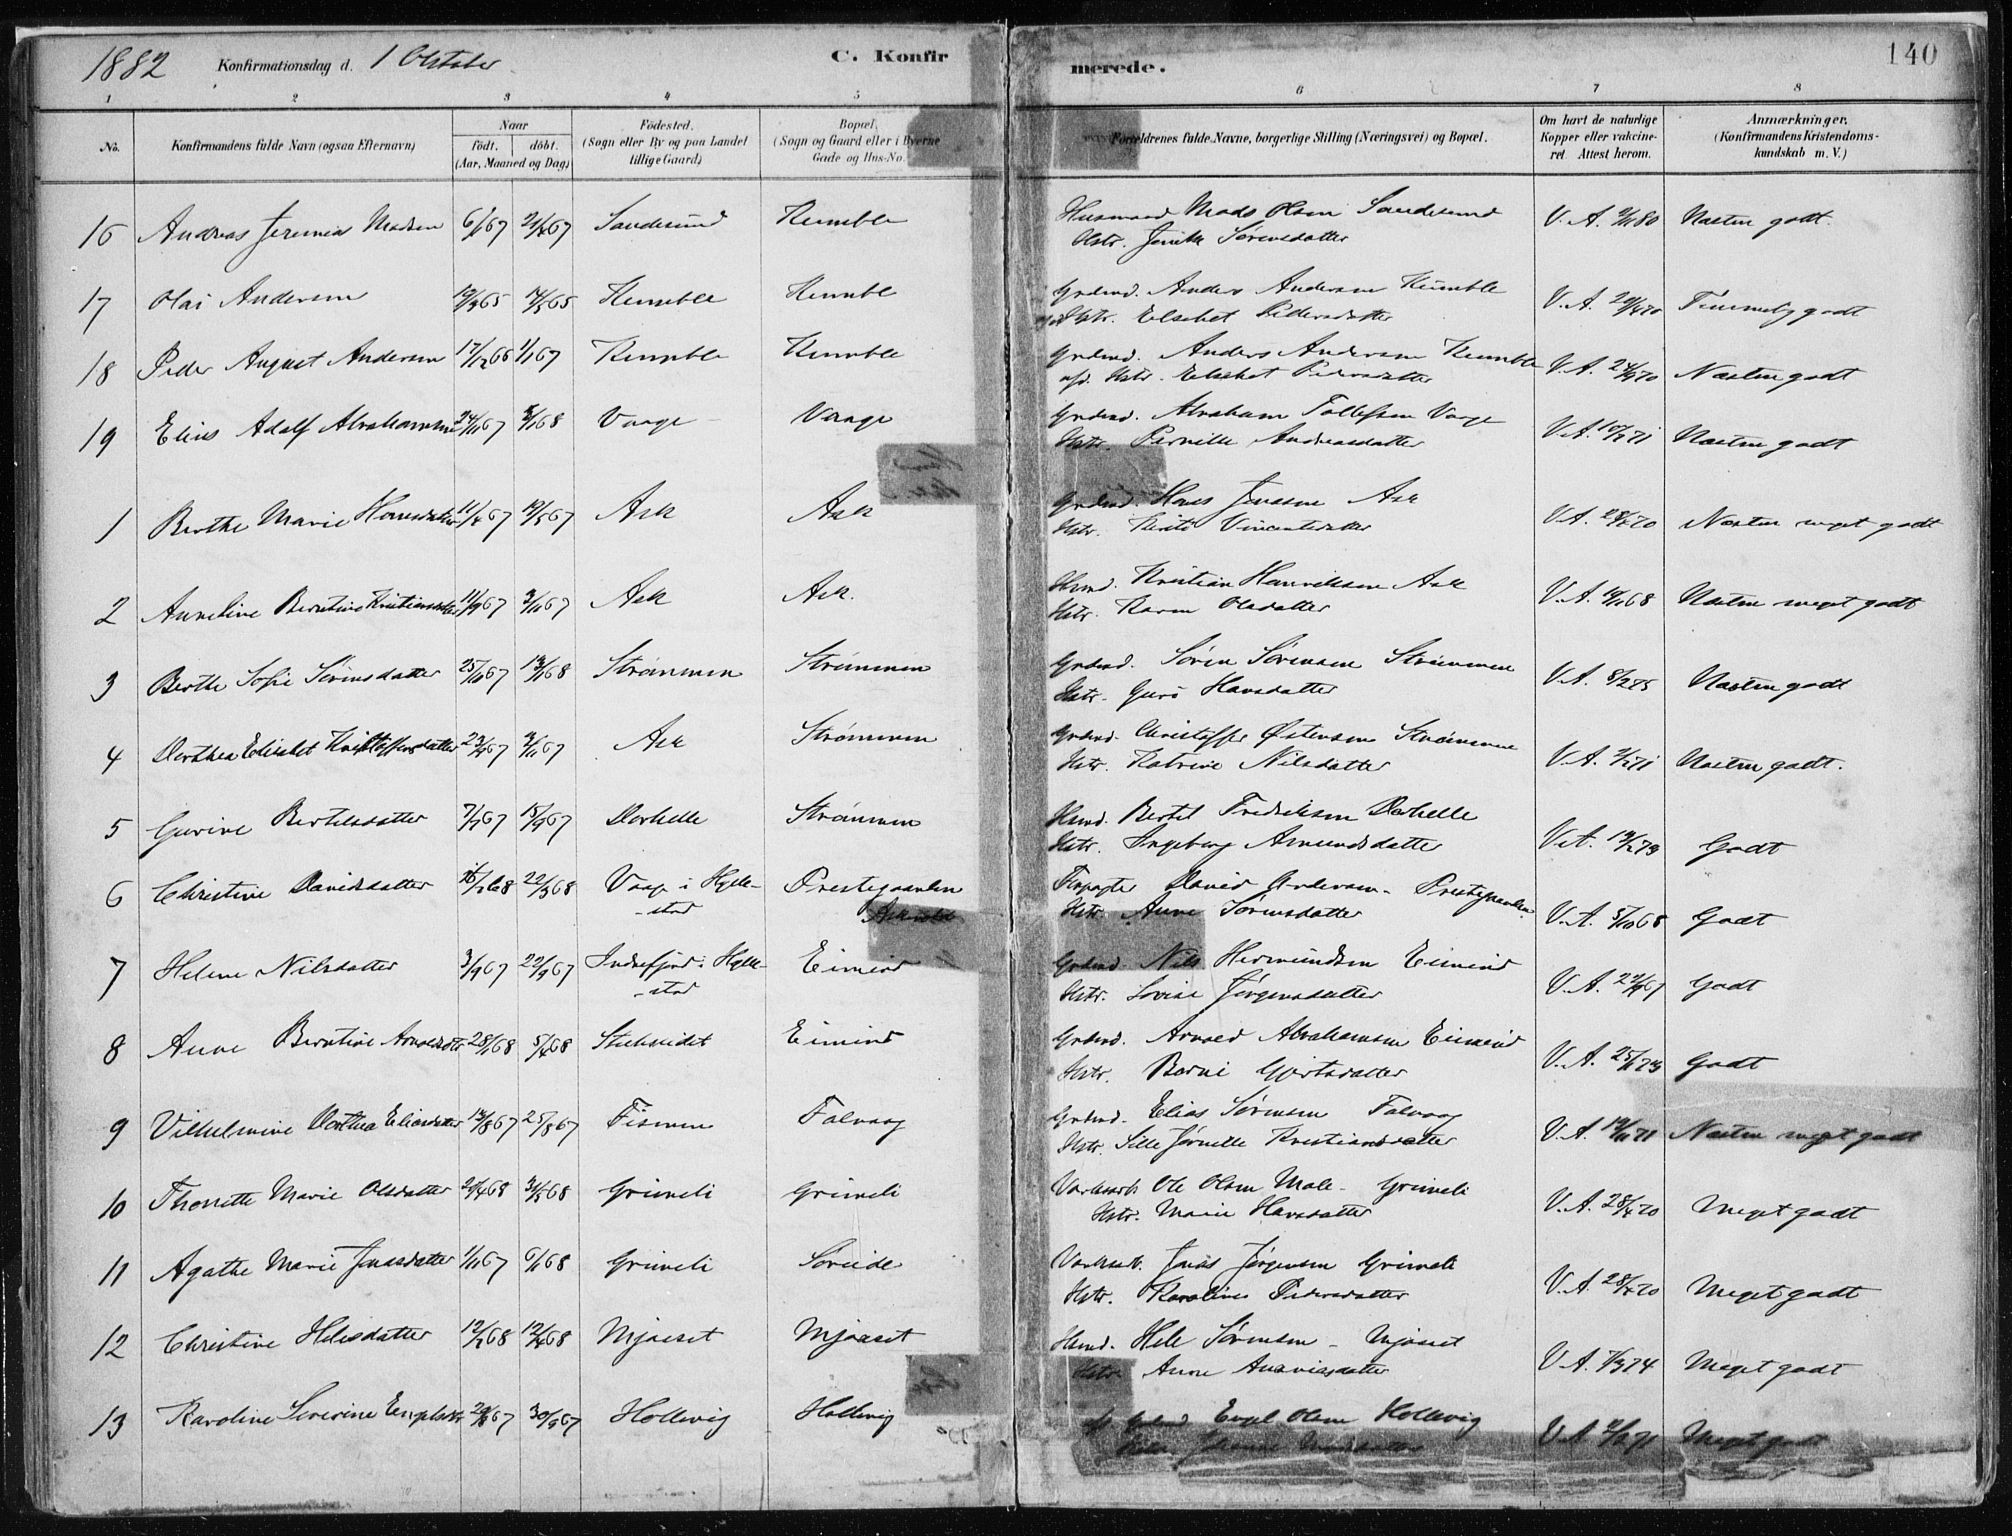 1882 Konfirmationsdag d. 1 Oktober C. Konfirmerede. 140
1 2 3 4 5 6 7 8
No. Konfirmandens fulde Navn (ogsaa Efternavn) Naar født. døbt. (Aar, Maaned og Dag) Fødested. (Sogn eller By og paa Landet tillige Gaard) Bopæl. (Sogn og Gaard eller i Byerne Gade og Hus-No.) Forældrenes fulde Navne, borgerlige Stilling (Næringsvei) og Bopæl. Om havt de naturlige Kopper eller vakcineret. Attest herom. Anmærkninger. (Konfirmandens Kristendomskundskab m. V.)
16 Andreas Jeremias Madsen 67 67 Sandesund Kumble Husmand Mads Olsen Sandesund V. A. 80 Næsten godt.
Hstr. Sørensdatter
17 Olai Andersen 65 65 Kumble Kumble Grdmd. Anders Andersen Kumble V. A. 70 Temmelig godt
Hstr. Elsebet Pedersdatter
18 Peder August Andersen 17/12 66 1/1 67 Kumble Kumble Grdmd. Anders Andersen Kumble V. A. 70 Næsten godt
afd. Hstr. Elsebet Pedersdatter
19 Elias Adolf Abrahamsen 24/11 67 68 Vaage Vaage Grdmd. Abraham Tollefsen Vaage V. A. 71 Næsten godt
Hstr. Pernille Andreasdatter
1 Berthe Marie Hansdatter 11/4 67 12/5 67 Ask Ask Grdmd. Hans Jonasen Ask V. A. 70 Næsten meget godt
Hstr. Vincentsdatter
2 Anneline Berntine Kristiansdatter 11/9 67 3/11 67 Ask Ask. Hsmd. Kristian Henriksen Ask V. A. 68 Næsten meget godt
Hstr. Karen Olsdatter
3 Berthe Sofie Sørensdatter 25/11 67 68 Strømmen Strømmen Grdmd. Søren Sørensen Strømmen V. A. 8/2 75 Næsten godt
Hstr. Guro Hansdatter
4 Dorthea Elisabet Kristoffersdatter 23/9 67 67 Ask Strømmen Grdmd. Christoffer Østensen Strømmen V. A. 71 Næsten godt.
Hstr. Katrine Nilsdatter
5 Gurine Bertelsdatter 7/7 67 15/9 67 Dorhelle Strømmen Hsmd. Bertel Fredriksen Dorhelle V. A. 73 Godt
Hstr. Ingeborg Amundsdatter
6 Christine Davidsdatter 16/2 68 22/3 68 Vaage i Hyllestad Prestegaarden Askvold Forpagter David Andersen - Prestegaarden V. A. 5/10 68 Godt
Hstr. Anne Sørensdatter
7 Helene Nilsdatter 3/9 67 22/9 67 Indrefjord i Hyllestad Eimind Grdmd. Nils Hermundsen Eimind V. A. 67 Godt
Hstr. Lovise Jørgensdatter
8 Anne Berntine Arnoldsdtr 28/1 68 5/4 68 Eimind Grdmd. Arnold Abrahamsen Eimind V. A. 25/11 73 Godt
Hstr. Berni Gjertsdatter
9 Vilhelmine Dorthea Eliasdatter 14/8 67 25/8 67 Fismen Folvaag Grdmd. Elias Sørensen Folvaag V. A. 71 Næsten meget godt
Hstr. Sille Jørnelle Kristiansdatter
10 Thorette Marie Olsdatter 20/4 68 31/5 68 Grimeli Grimeli Værksarb. Ole Olsen Male - Grimeli V. A. 28/4 70 Meget godt
Hstr. Marie Hansdatter
11 Agathe Marie Jonasdatter 1/11 67 6/1 68 Grimeli Søreide Værksarb. Jonas Jørgensen Grimeli V. A. 28/4 70 Meget godt
Hstr. Karoline Pedersdatter
12 Christine Helesdatter 12/2 68 12/4 68 Mjøeset Mjøeset Hsmd. Hele Sørensen - Mjøeset V. A. 74 Meget godt
Hstr. Anne
13 Karoline Severine Engelsdtr 67 30/9 67 Hollevig Hollevig Engel Olsen Hollevig V. A. 71 Meget godt